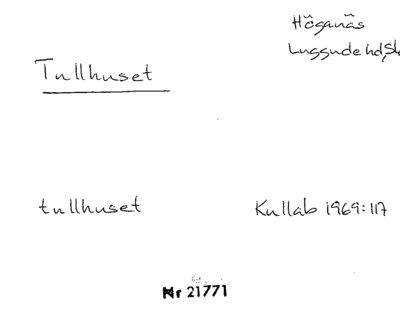 Höganäs
Luggude hd, Sk
Tullhuset
tullhuset
Kullab 1969:117
Nr 21771